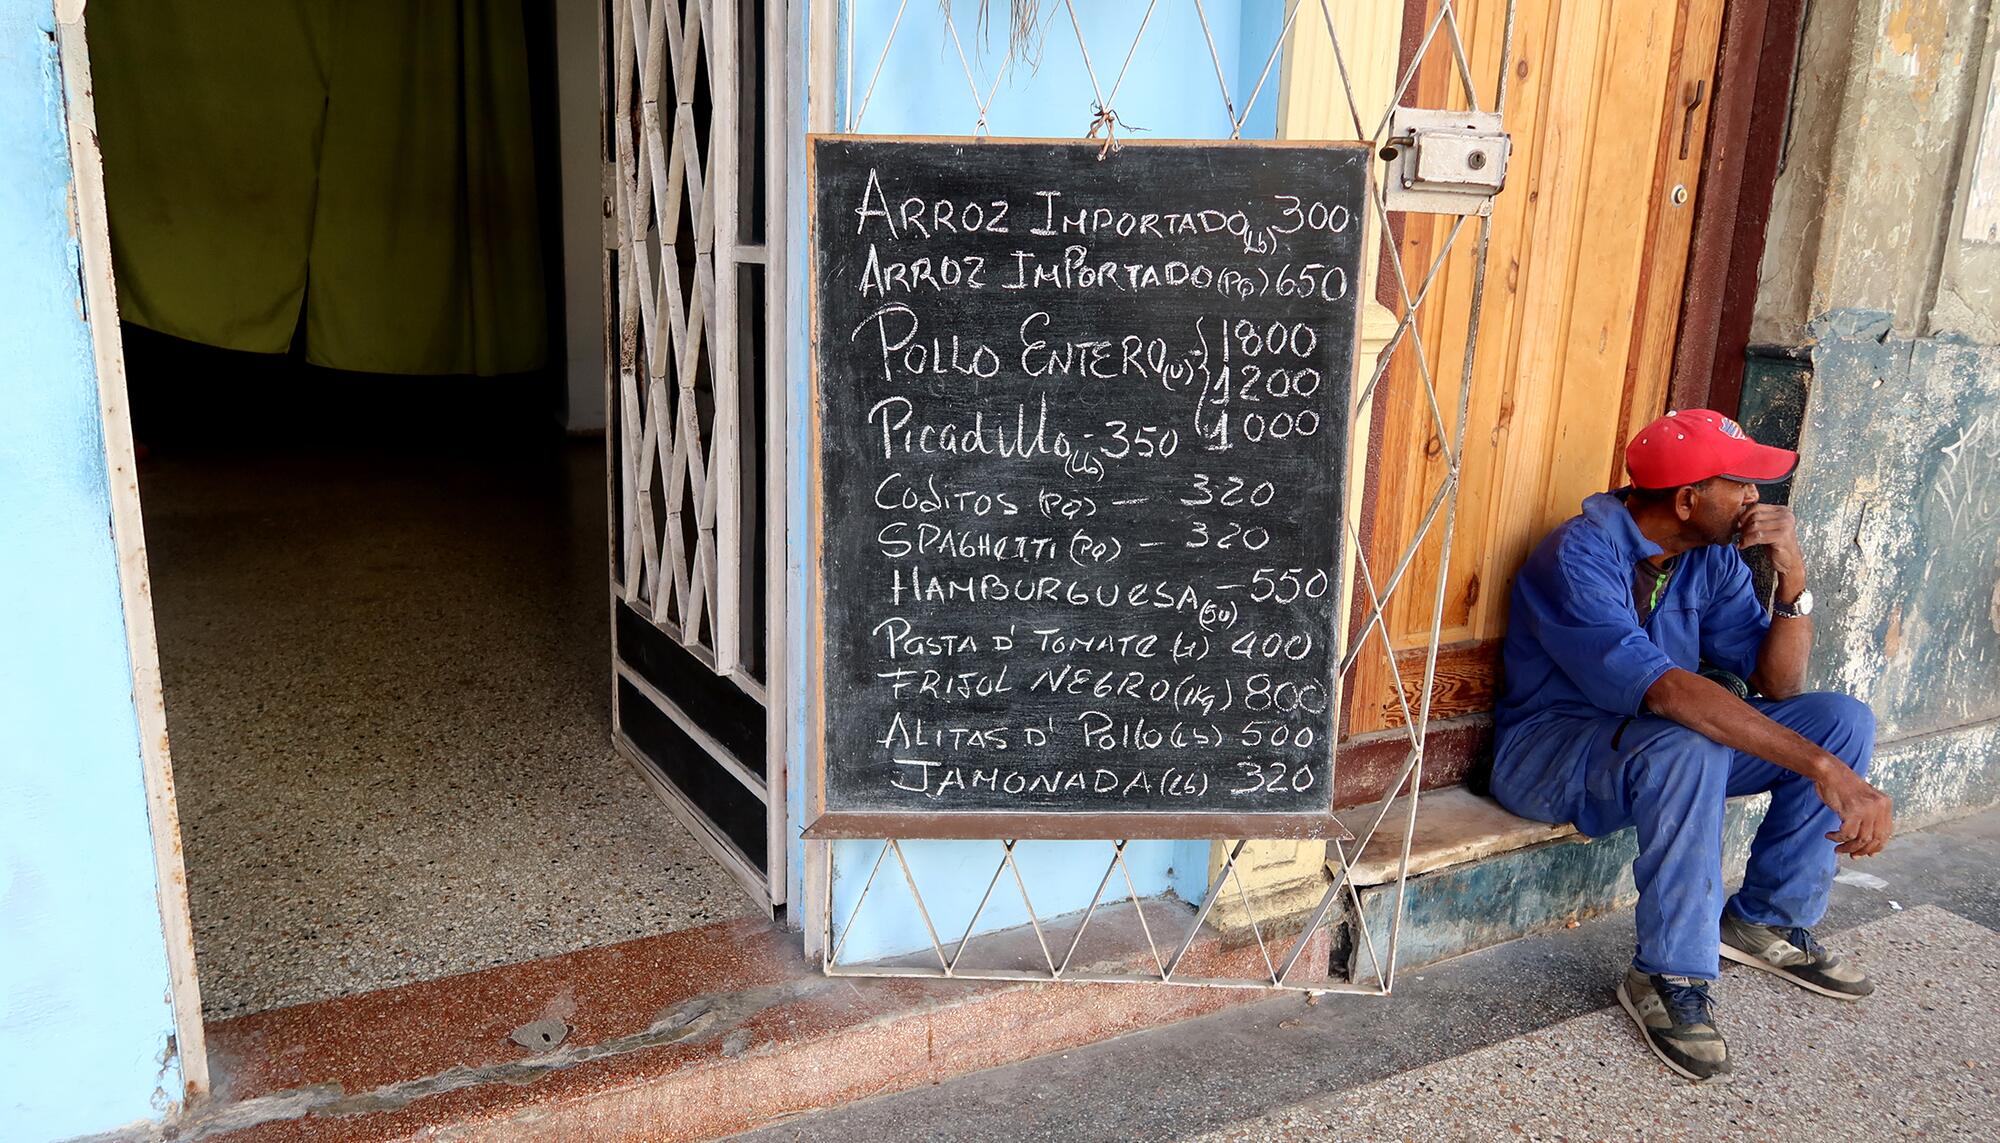 ARROZ IMPORTADO (Lb) 300
ARROZ IMPORTADO (PQ) 650
POLLO ENTERO (U) - { 1800
1200
1000
Picadillo (Lb) - 350
CODITOS (PQ) - 320
SPAGHETTI (PQ) - 320
HAMBURGUESA (5U) - 550
PASTA D' TOMATE 400
FRIJOL NEGRO (1Kg) 800
ALITAS D' POLLO (Lb) 500
JAMONADA (Lb) 320